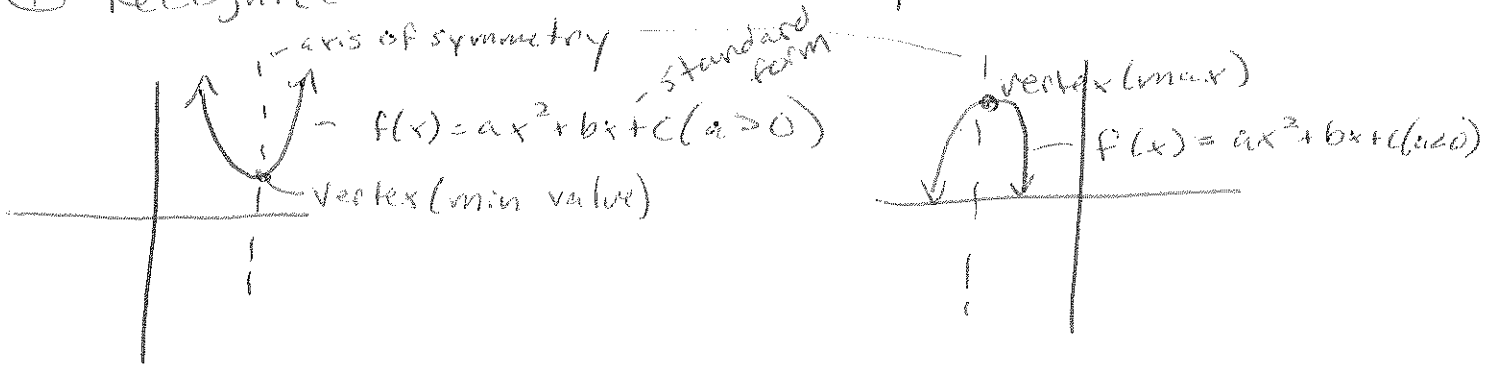 ① Recognize
axis of symmetry
standard form
f(x) = ax² + bx + c (a > 0)
vertex (min value)
vertex (max)
f(x) = ax² + bx + c (a < 0)